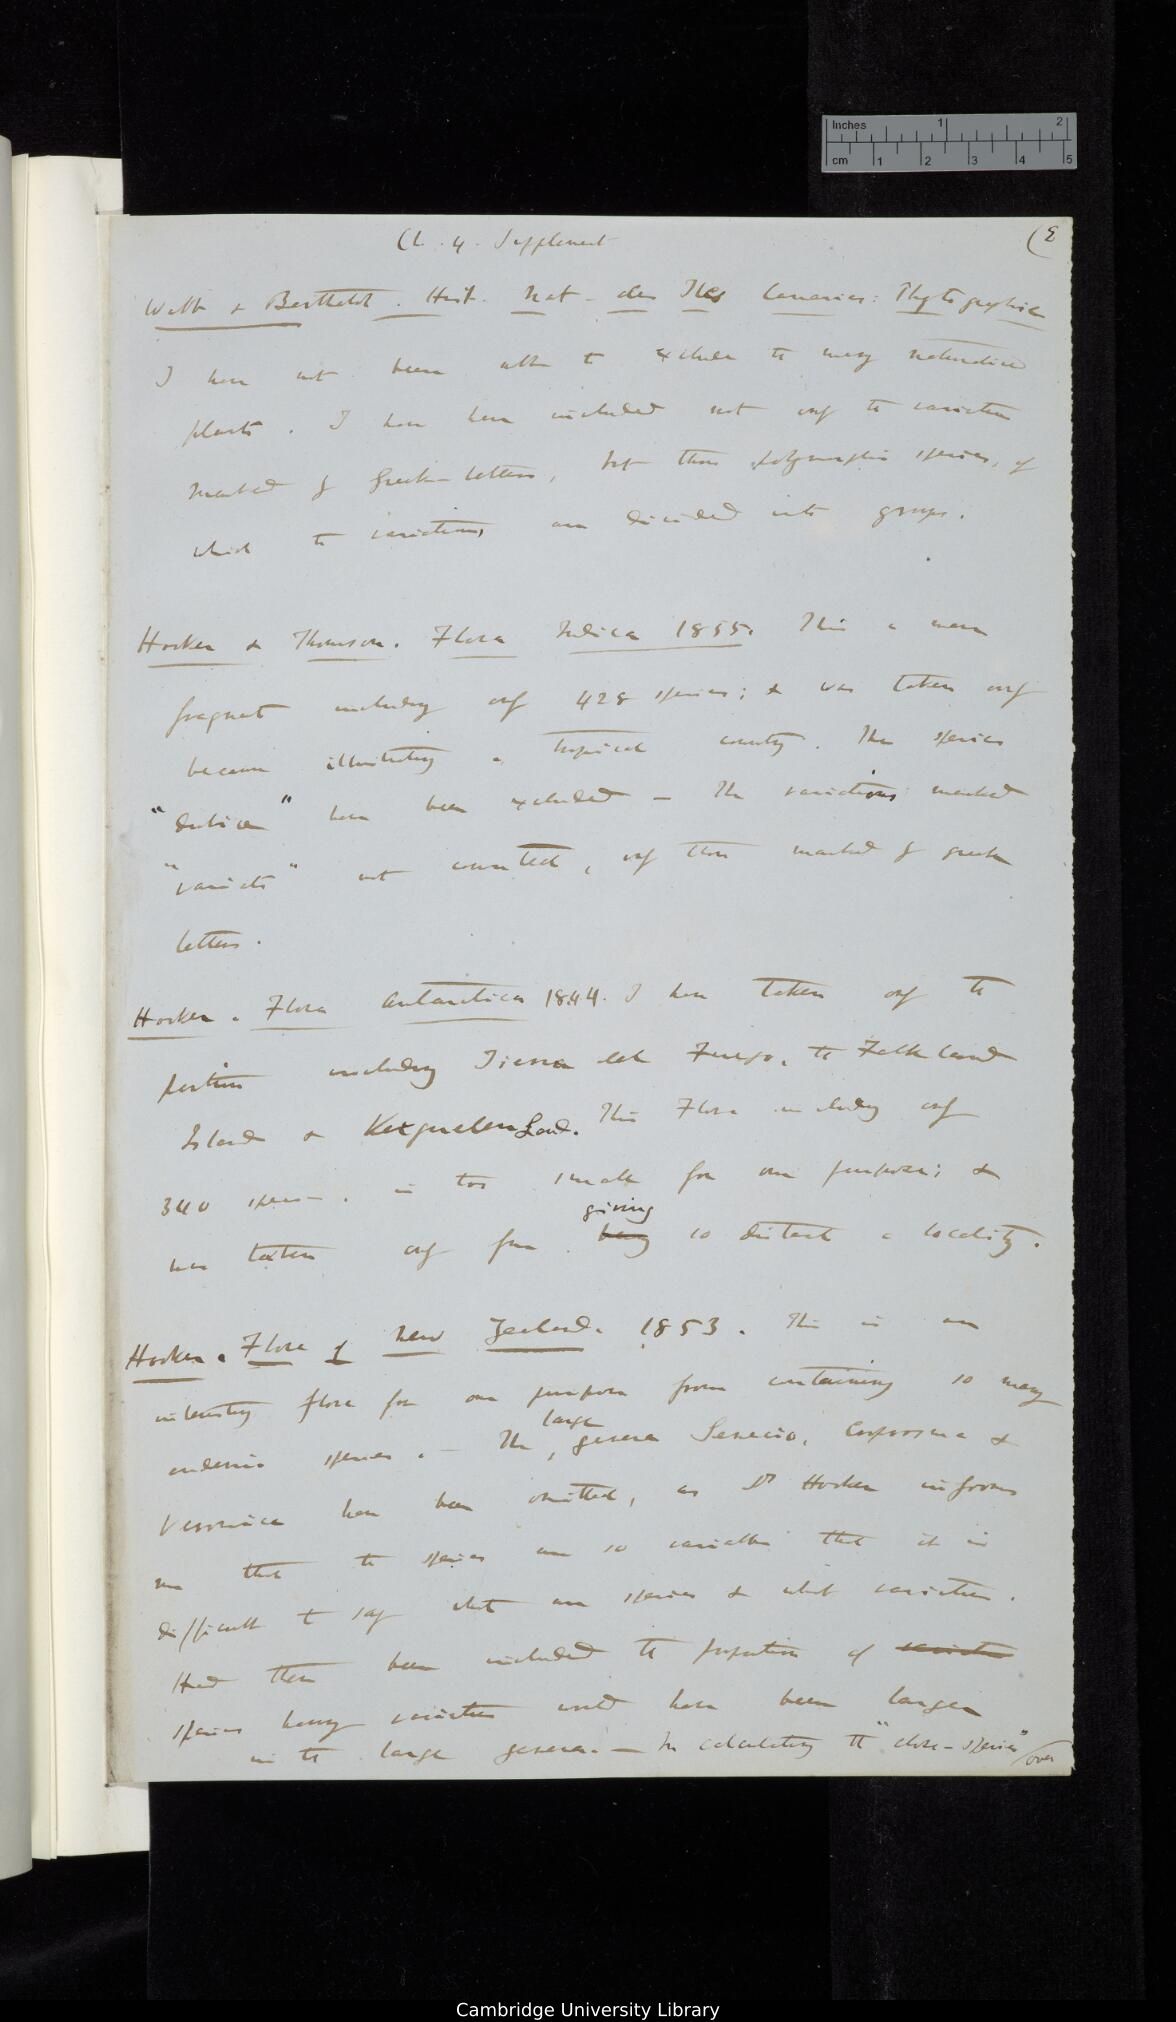 Inches 1 2
cm 1 2 3 4 5
Ch. 4. Supplement
(E
Webb & Berthelot. Hist. Nat. des Iles Canaries: Phytographia
I have not been able to exclude the many naturalised
plants. I have here included not only the varieties
marked by Greek-letters, but those polymorphic species, of
which the variations are divided into groups.
Hooker & Thomson. Flora Indica 1855. This is a mere
fragment including only 428 species; & was taken only
because illustrating a tropical country. The species
"dubiæ" have been excluded — The variations marked
"varieties" not counted, only those marked by greek
letters.
Hooker. Flora Antarctica 1844. I have taken only the
portion including Tierra del Fuego, the Falkland
Islands & Kerguelen Land. This Flora including only
340 species. is too small for our purpose; &
was taken only from giving
being so distant a locality.
Hooker. Flora of New Zealand. 1853. This is an
interesting flora for our purpose from containing so many
endemic species. — The large genera Senecio, Coprosma &
Veronica have been omitted, as Dr Hooker informs
me that the species are so variable that it is
difficult to say what are species & what varieties.
Had these been included the proportion of varieties
species having varieties would have been larger
in the large genera. — In calculating the "close-species"
/over
Cambridge University Library